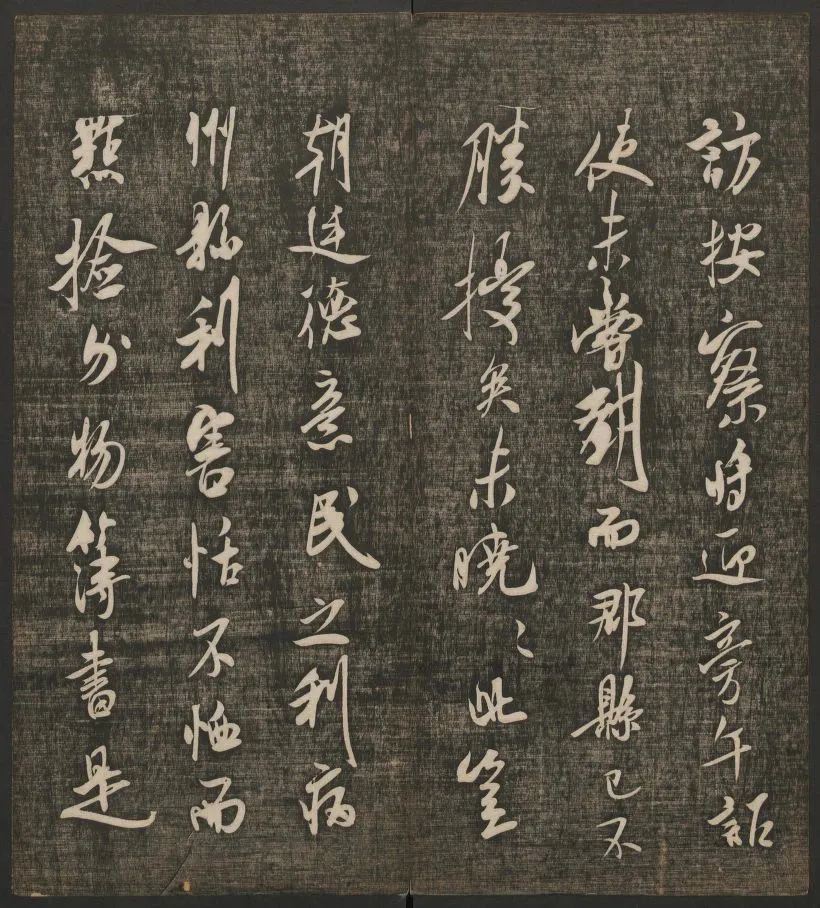 訪按察将迎旁午
使未嘗到而郡縣已不
勝擾矣未曉〻此豈
朝廷德意民之利病
州縣利害恬不恤而
點撿外物簿書是